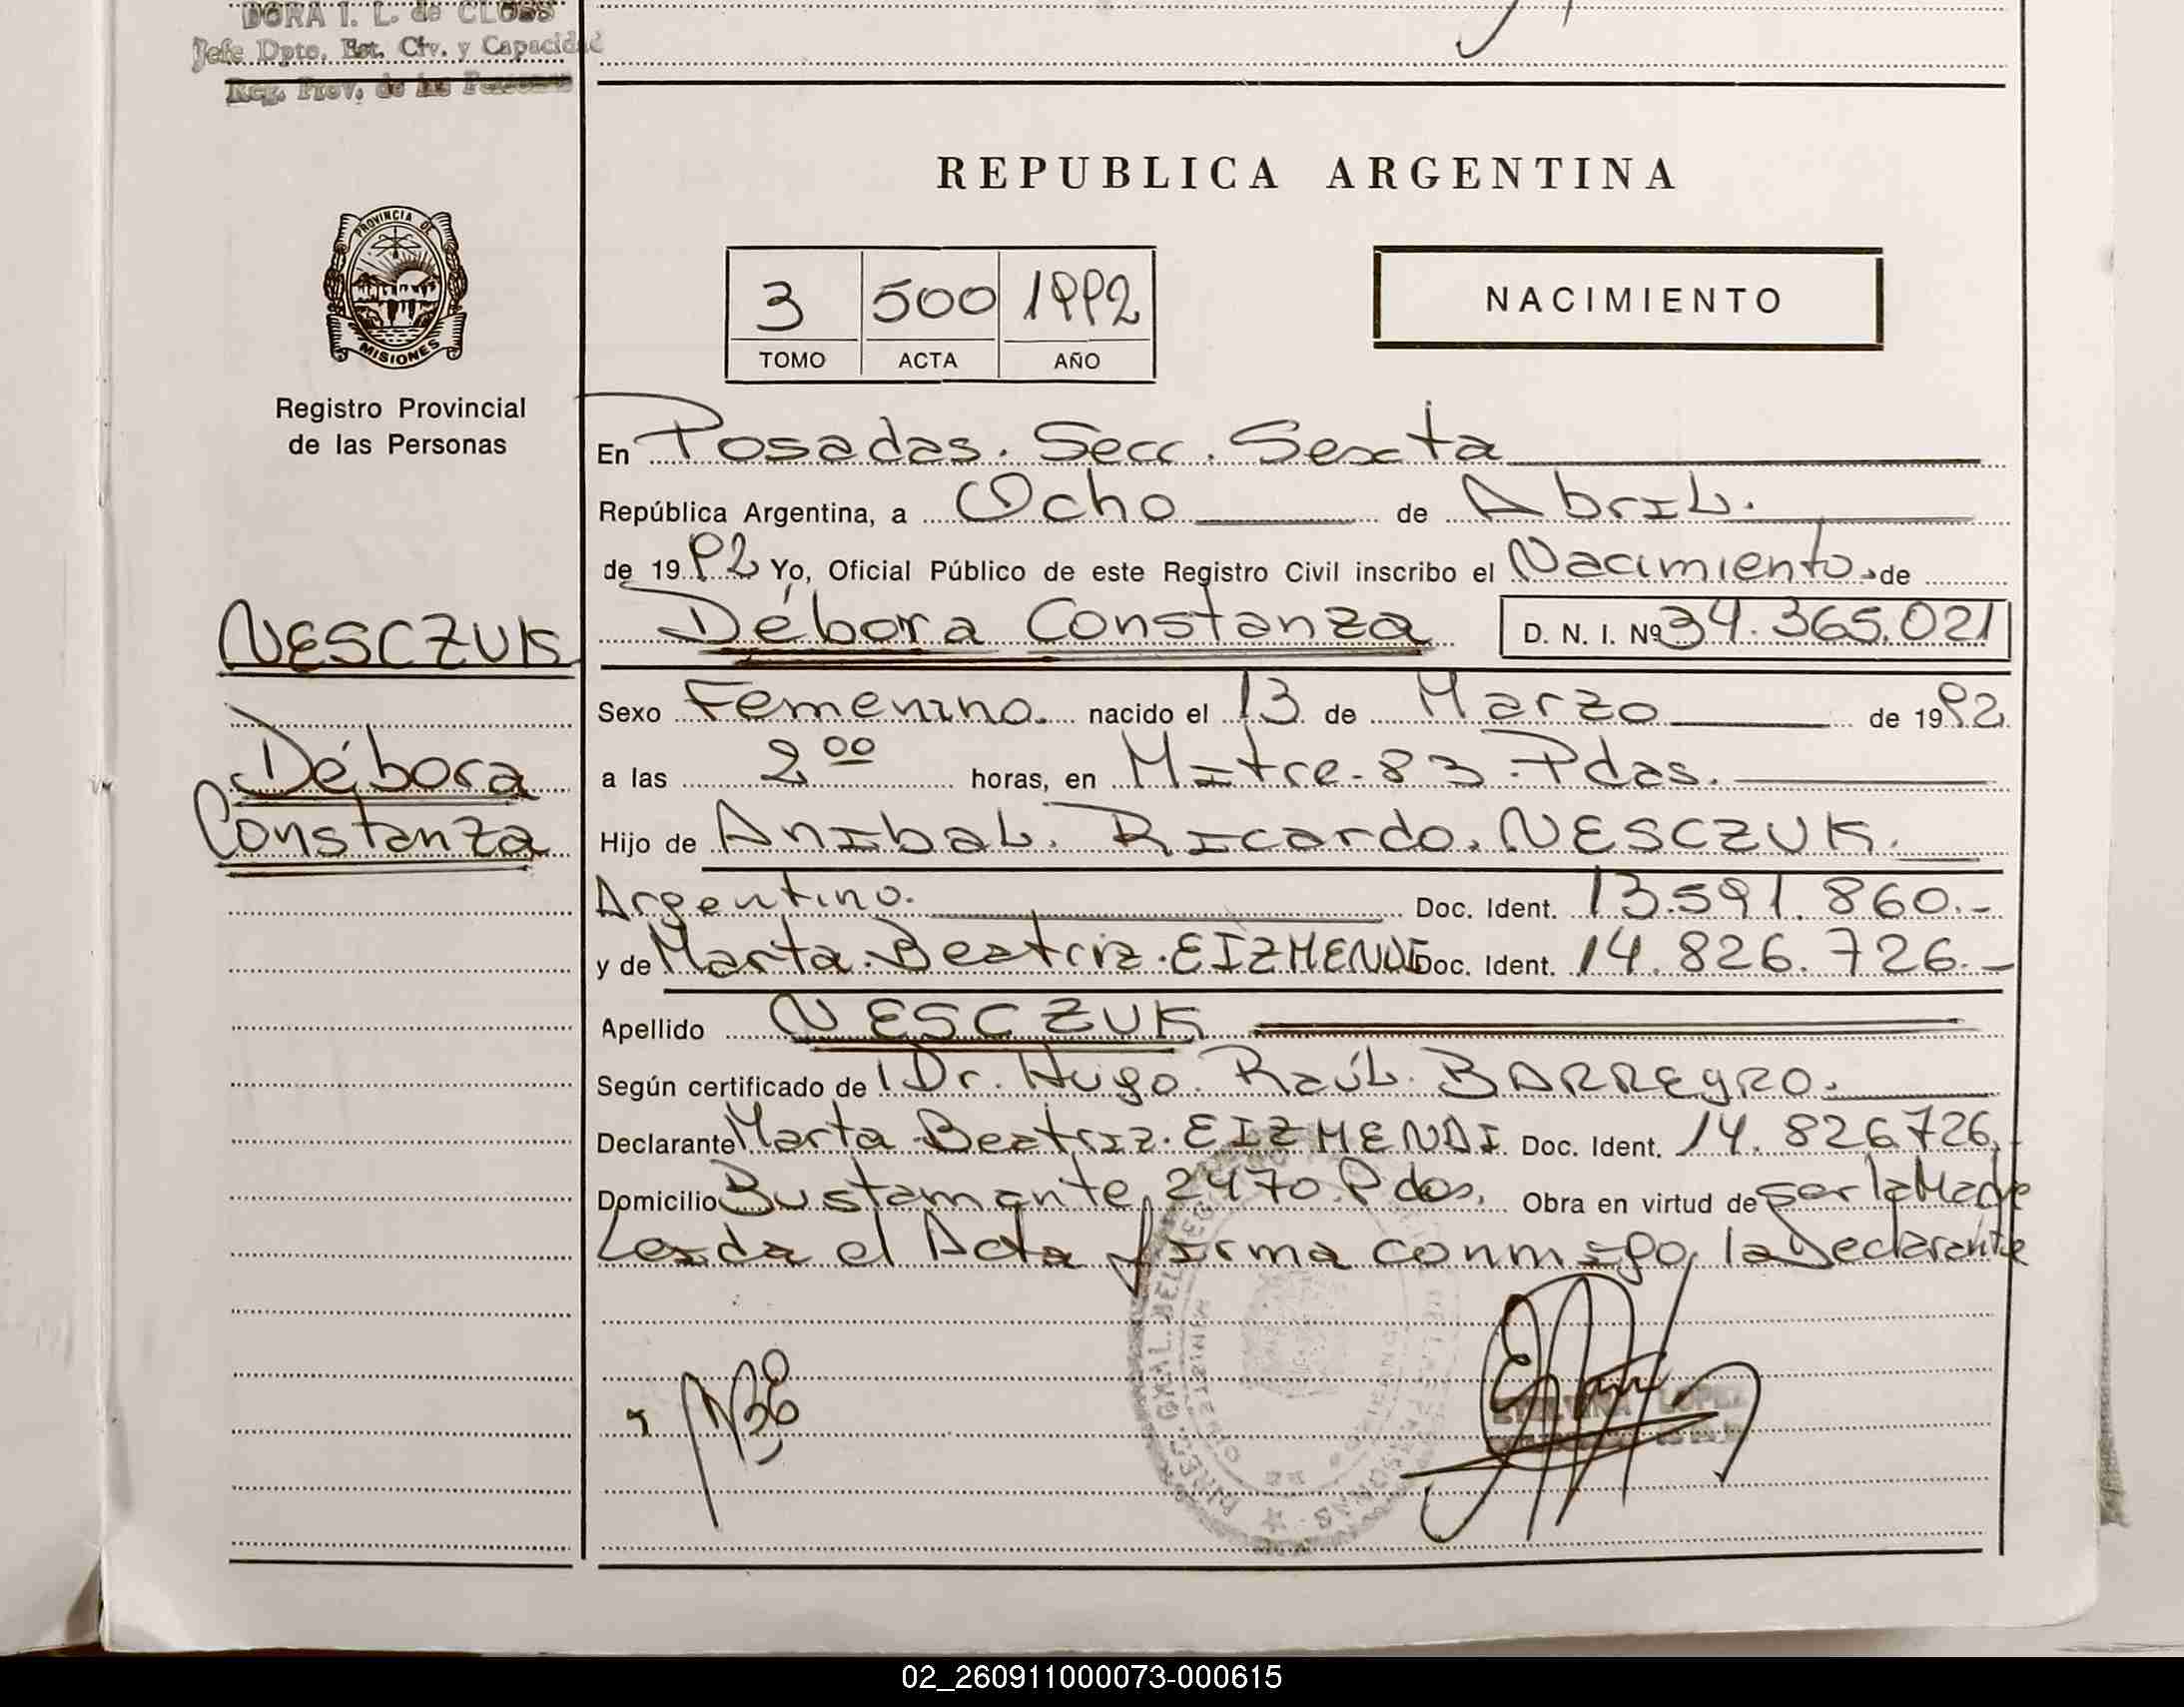 DORA I. L. de CLOSS
Jefe Dpto. Est. Civ. y Capacidad
Reg. Prov. de las Personas
REPUBLICA ARGENTINA
PROVINCIA DE
MISIONES
Registro Provincial
de las Personas
3 500 1992
TOMO ACTA AÑO
NACIMIENTO
En Posadas. Secc. Sexta
República Argentina, a Ocho de Abril.
de 1992 Yo, Oficial Público de este Registro Civil inscribo el Nacimiento de
NESCZUK
Débora
Constanza
Débora Constanza D. N. I. Nº 34.365.021
Sexo Femenino. nacido el 13 de Marzo de 1992.
a las 2 00 horas, en Mitre-83-Pdas.
Hijo de Anibal. Ricardo. NESCZUK.
Argentino. Doc. Ident. 13.591.860.-
y de Marta.Beatriz.EIZMENDI Doc. Ident. 14.826.726.-
Apellido NESCZUK
Según certificado de Dr. Hugo. Raúl. BARREGRO.
Declarante Marta Beatriz. EIZMENDI Doc. Ident. 14.826726.
Domicilio Bustamante 2470. Pdas. Obra en virtud de ser la Madre
Leida el Acta firma conmigo, la Declarante
LOPEZ
02_260911000073-000615